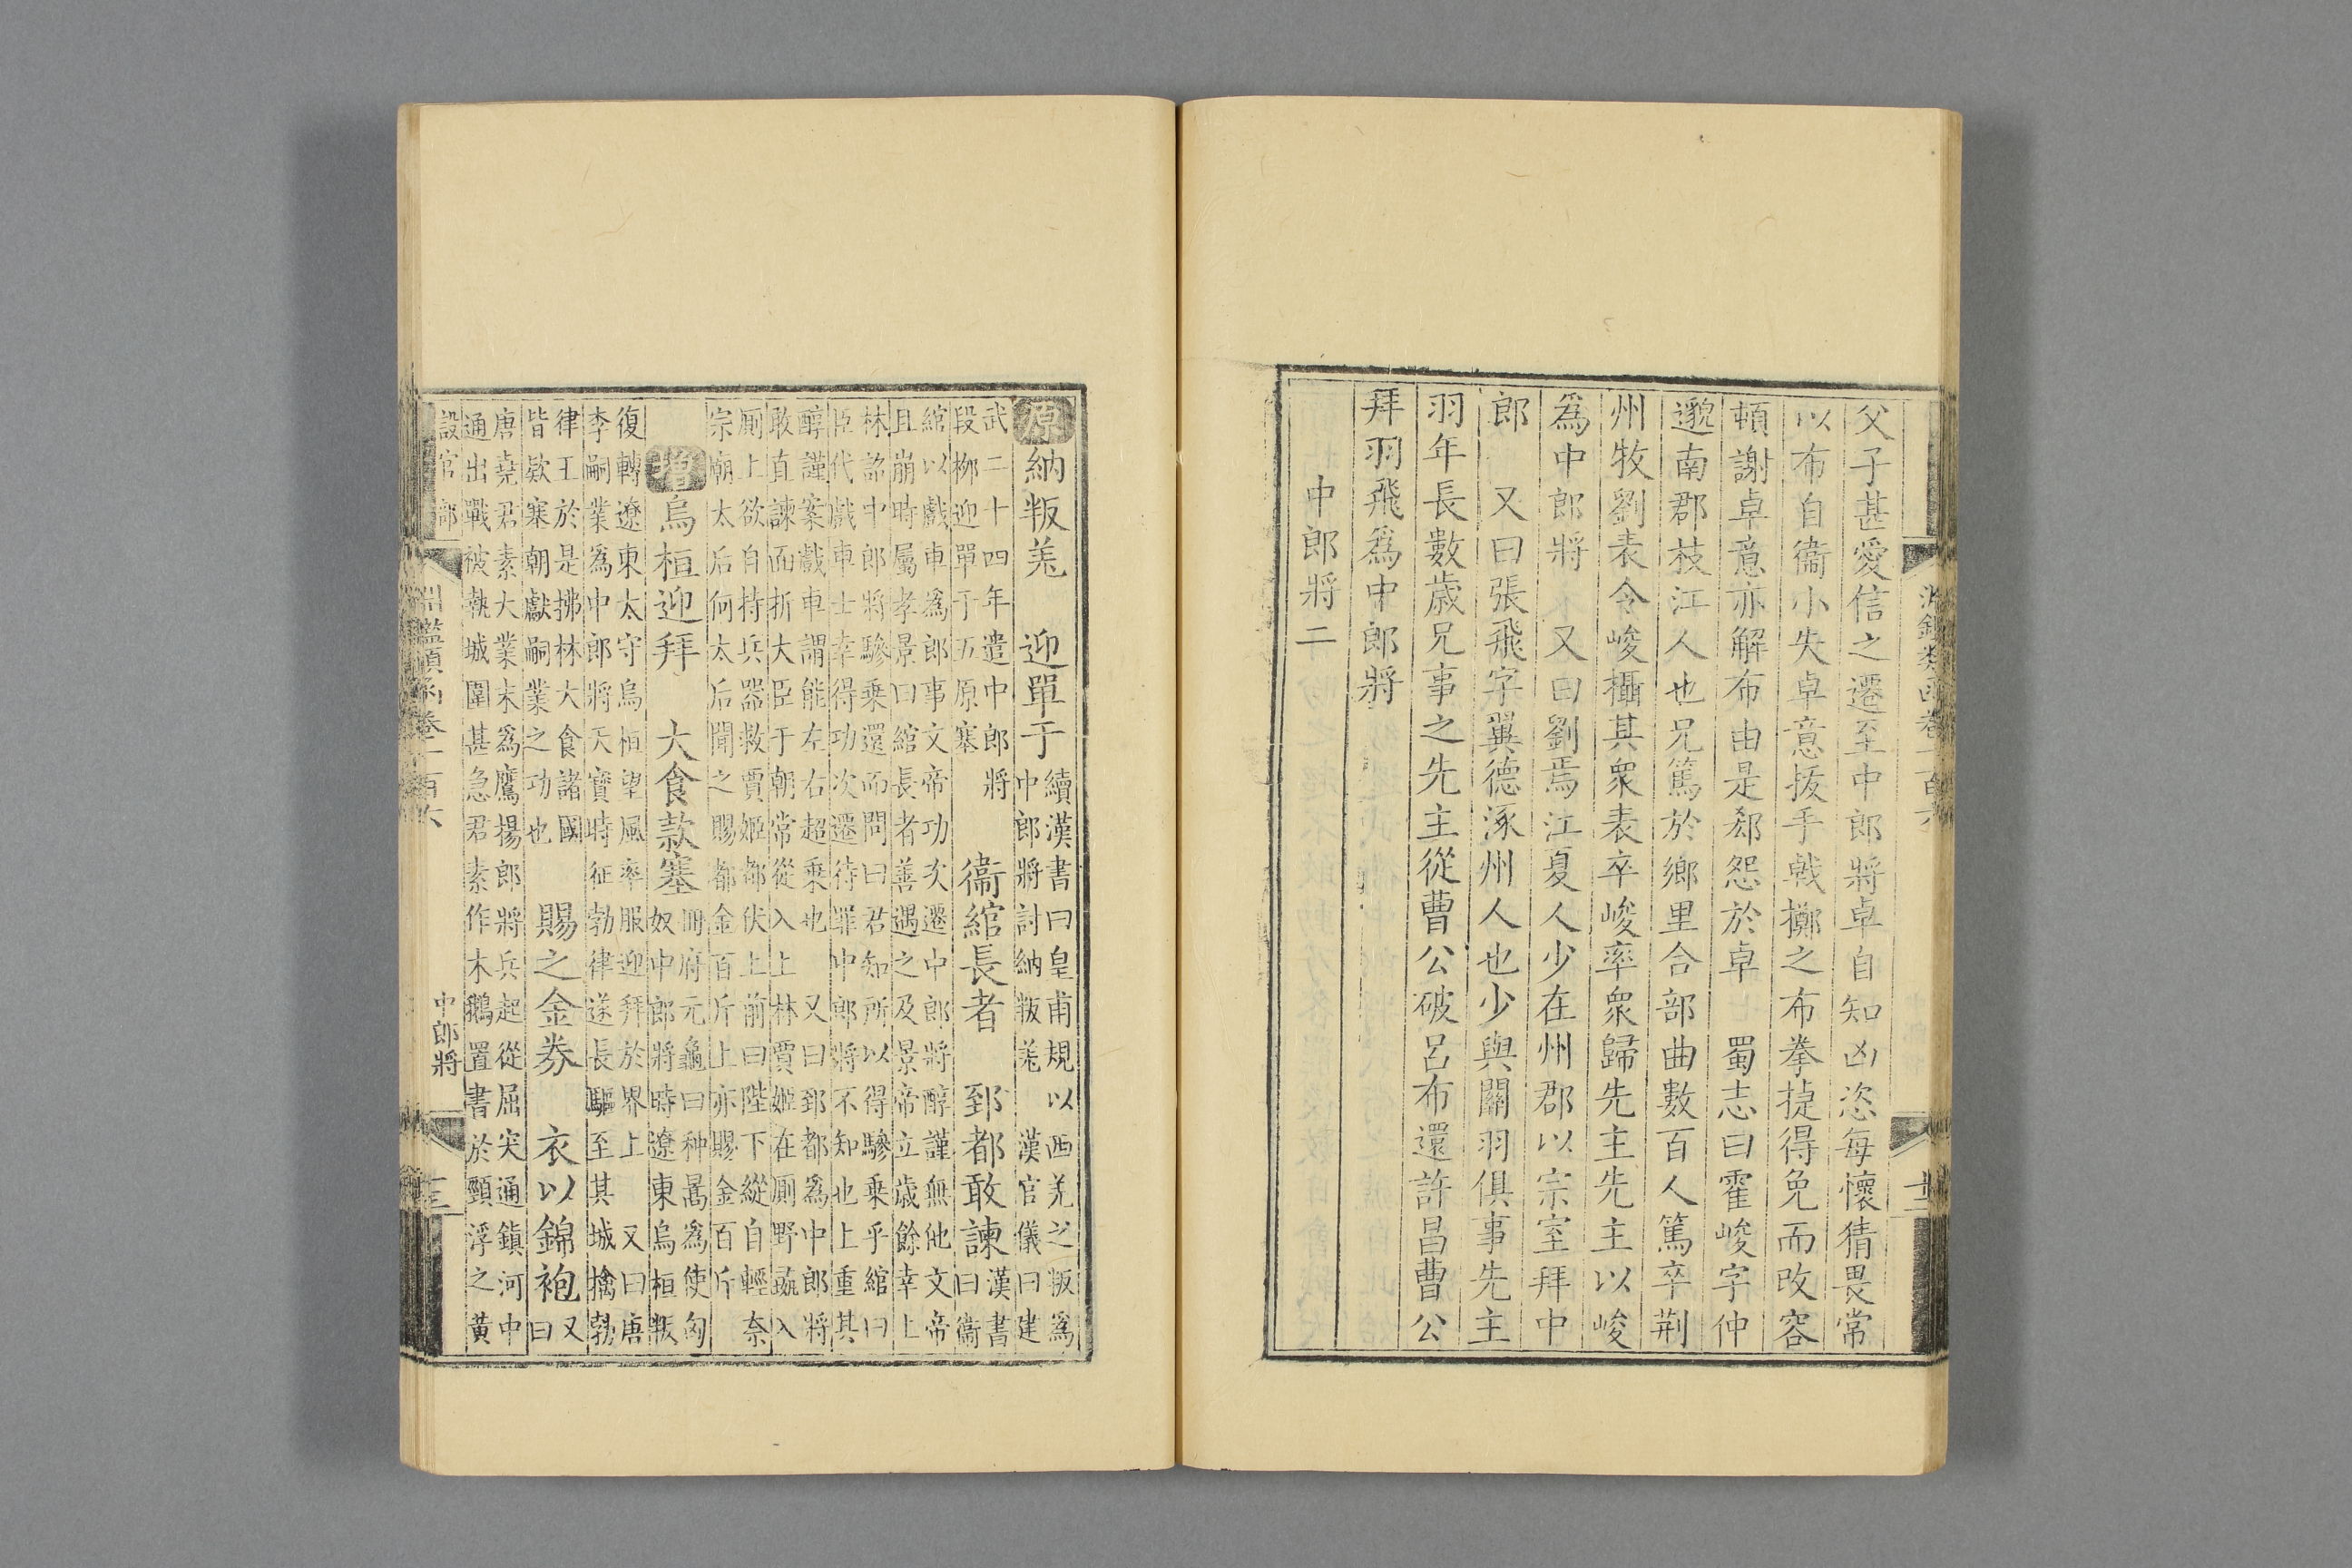 父子甚愛信之遷至中郎將卓自知凶恣每懷猜畏常
以布自衞小失卓意拔手戟擲之布拳捷得免而改容
頓謝卓意亦解布由是郄怨於卓 蜀志曰霍峻字仲
邈南郡枝江人也兄篤於鄉里合部曲數百人篤卒荆
州牧劉表令峻攝其衆表卒峻率衆歸先主先主以峻
爲中郎將 又曰劉焉江夏人少在州郡以宗室拜中
郎 又曰張飛字翼德涿州人也少與關羽俱事先主
羽年長數歲兄事之先主從曹公破呂布還許昌曹公
拜羽飛爲中郎將
中郎將二
原 納叛羌 迎單于 續漢書曰皇甫規以西羌之叛爲
中郎將討納叛羌 漢官儀曰建
武二十四年遣中郎將
段郴迎單于五原塞 衞綰長者 郅都敢諫 漢書
曰衞
綰以戲車爲郎事文帝功次遷中郎將醇謹無他文帝
且崩時屬孝景曰綰長者善遇之及景帝立歲餘幸上
林詔中郎將驂乘還而問曰君知所以得驂乘乎綰曰
臣代戲車士幸得功次遷待罪中郎將不知也上重其
醇謹案戲車謂能左右超乘也 又曰郅都爲中郎將
敢直諫面折大臣于朝常從入上林賈姬在厠野彘入
厠上欲自持兵器救賈姬都伏上前曰陛下縱自輕奈
宗廟太后何太后聞之賜都金百斤上亦賜金百斤
增 烏桓迎拜 大食款塞 冊府元龜曰种暠爲使匈
奴中郎將時遼東烏桓叛
復轉遼東太守烏桓望風率服迎拜於界上 又曰唐
李嗣業爲中郎將天寶時征勃律遂長驅至其城擒勃
律王於是拂林大食諸國
皆欵塞朝獻嗣業之功也 賜之金券 衣以錦袍 又
曰
唐堯君素大業末爲鷹揚郎將兵起從屈突通鎭河中
通出戰被執城圍甚急君素作木鵝置書於頸浮之黃
設官部
中郎將